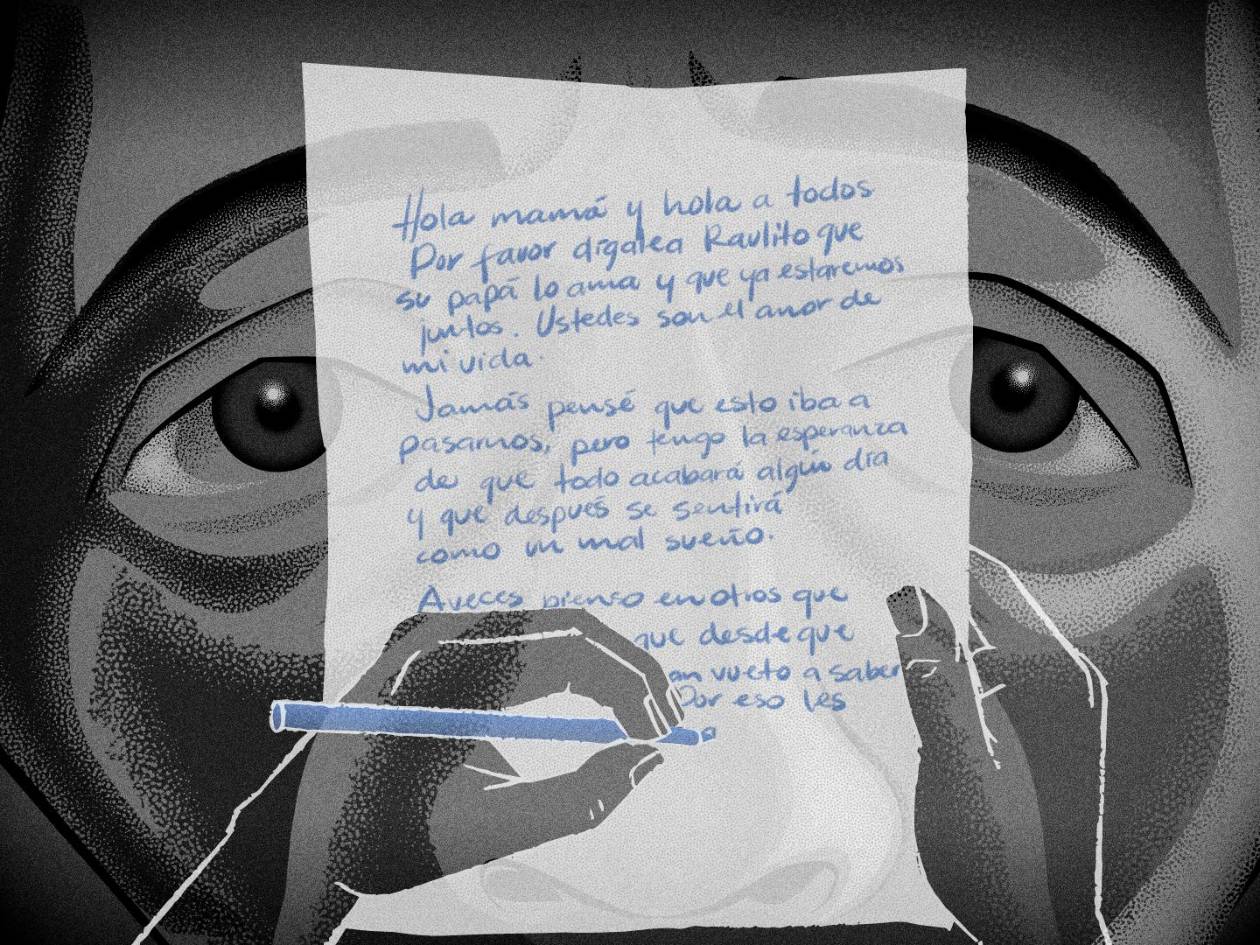 Hola mamá y hola a todos
Por favor digalea Raulito que
su papá lo ama y que ya estaremos
juntos. Ustedes son el amor de
mi vida.
Jamás pensé que esto iba a
pasarnos, pero tengo la esperanza
de que todo acabará algún día
y que después se sentirá
como un mal sueño.
Aveces pienso en otros que
que desde que
an vueto a saber
Por eso les